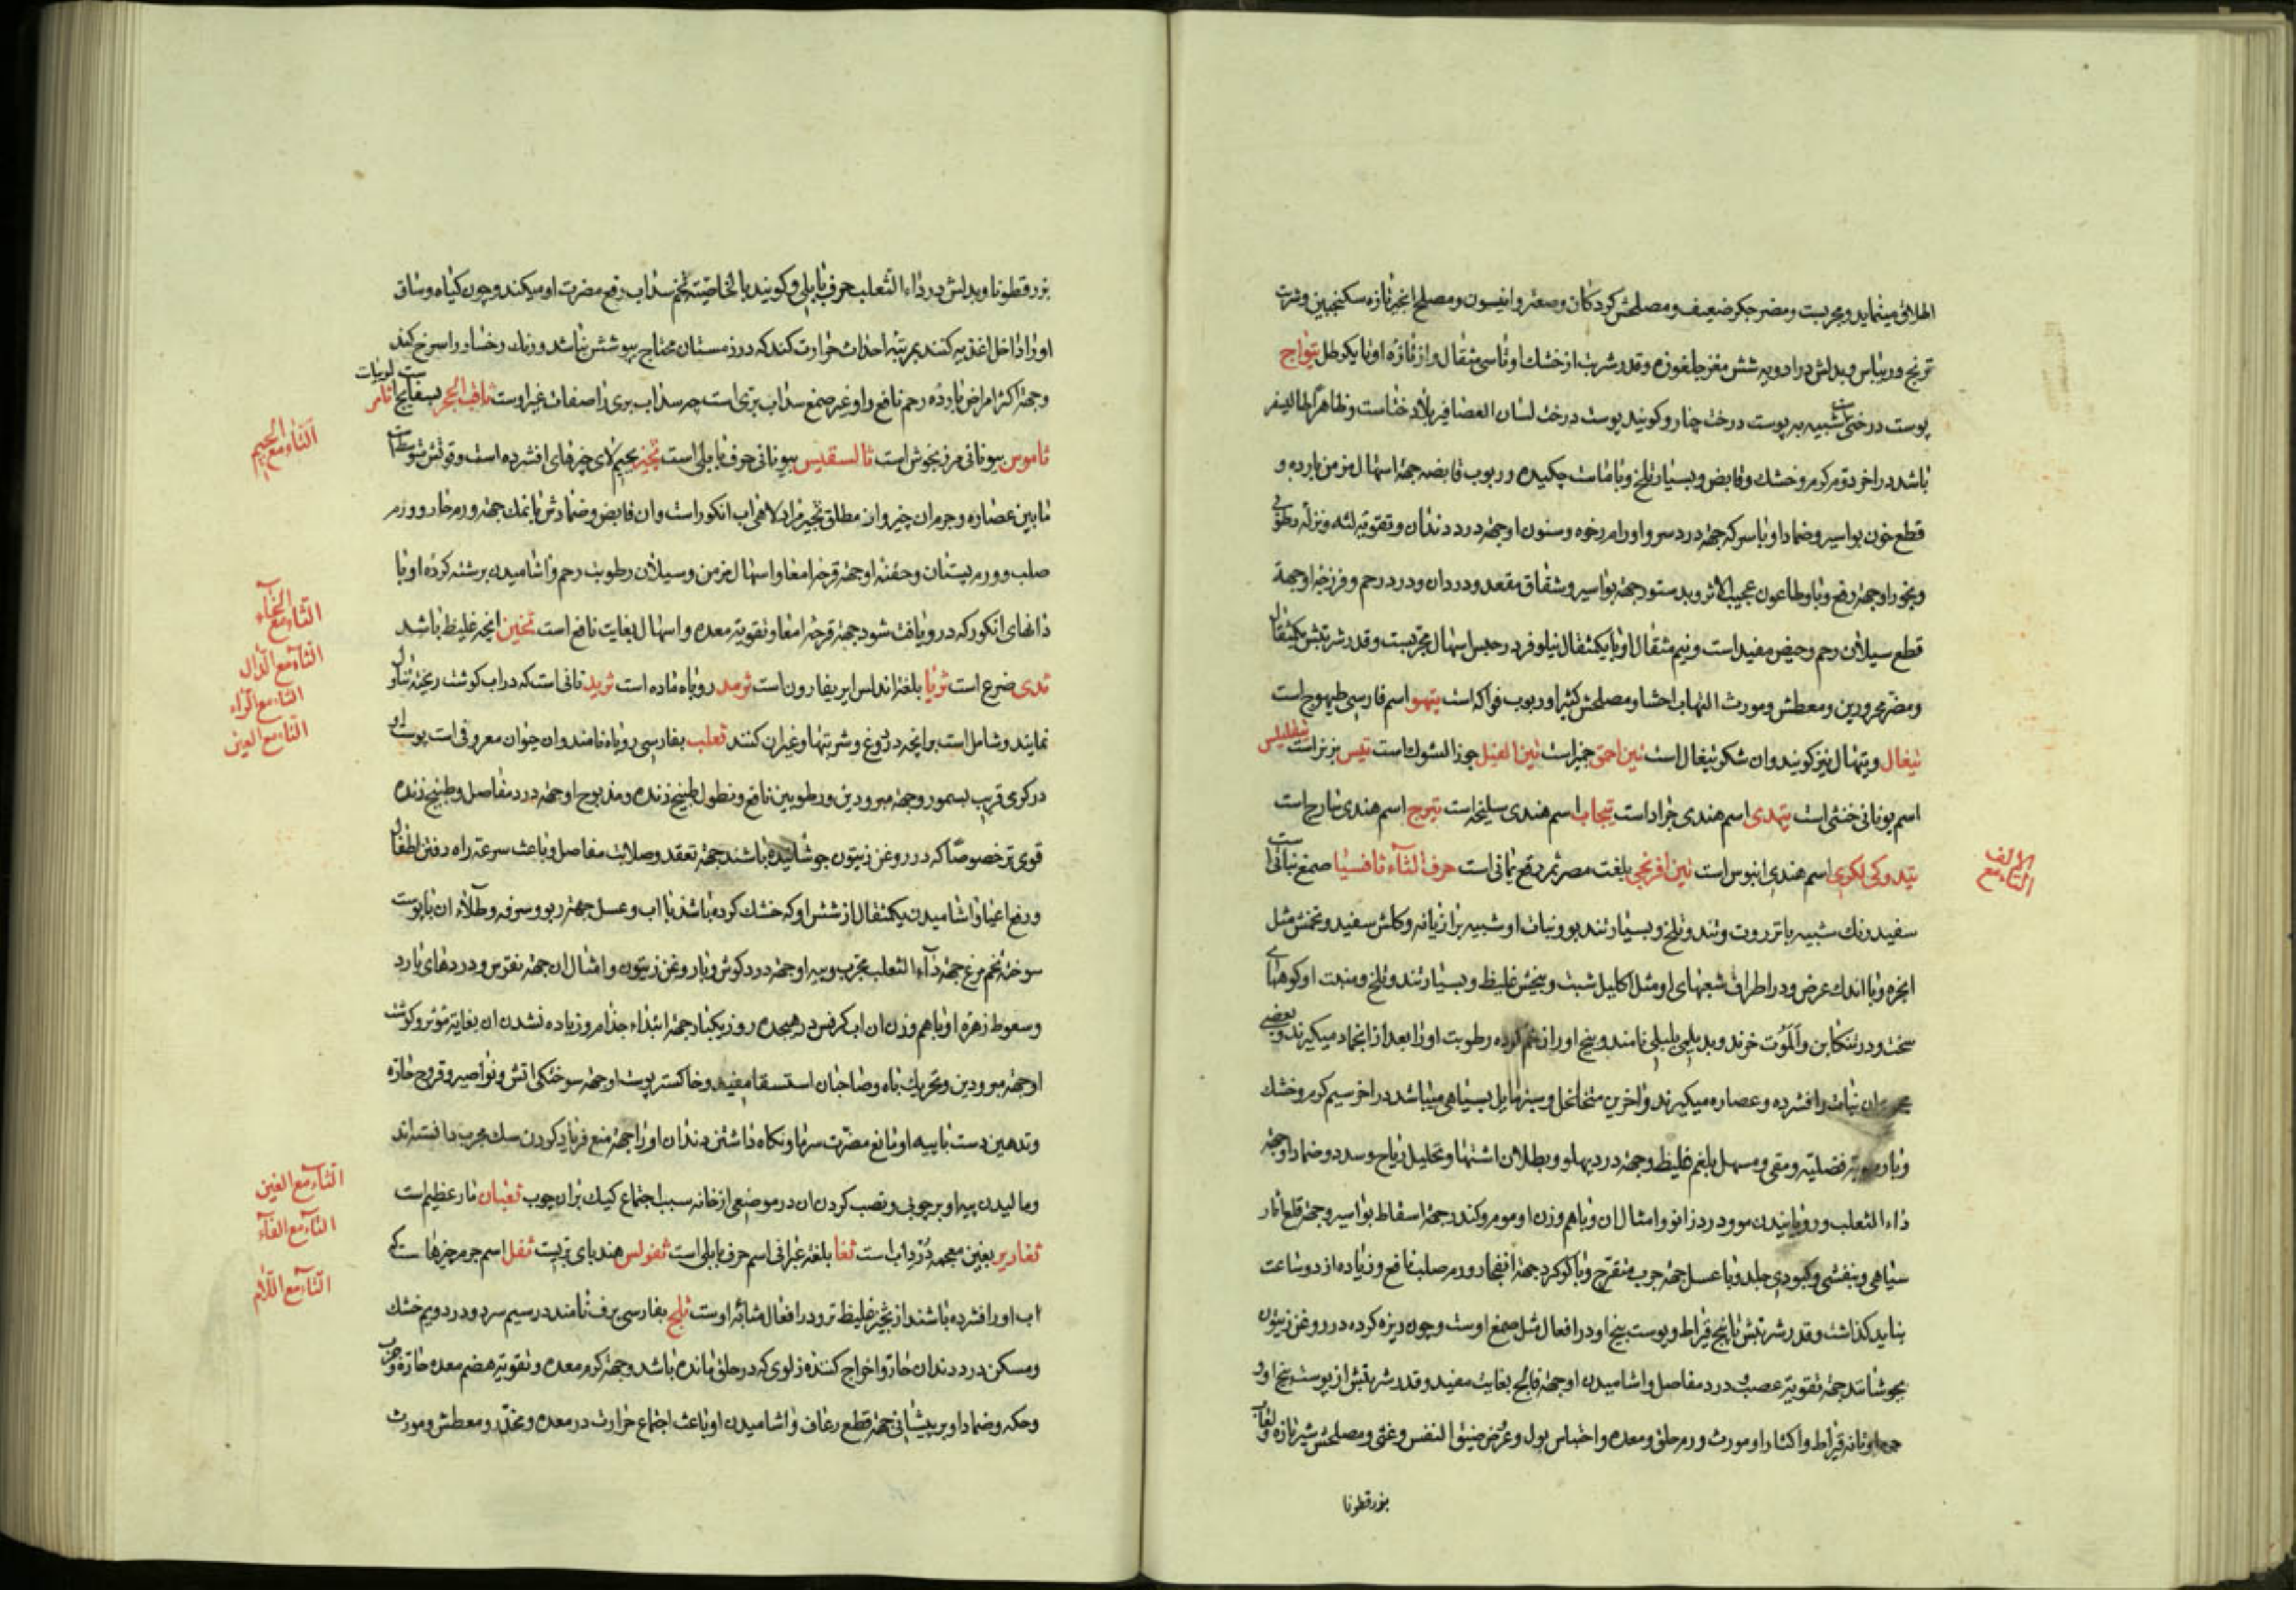 اطلاق مینماید ومجربست ومضر جکر ضعیف ومصلحش کردکان وصعتر وانیسون ومصلح انجیر تازه سکنجبین وشربت
ترنج وریباس وبدلش در ادویه شش مغز جلغوزه وقدر شربت از خشک او تا سی مثقال واز تازه او تا یکرطل تیواج
پوست درختیست شبیه به پوست درخت چنار وکویند پوست درخت لسان العصافیر بلاد ختاست وظاهرا طالیسفر
باشد در اخر دوم کرم وخشک وقابض وبسیار تلخ وبا ماست چکیده وربوب قابضه جهة اسهال مزمن بارده و
قطع خون بواسیر وضماد او با سرکه جهة درد سر واورام رخوه وسنون او جهة درد دندان وتقویه لثه ونزله رطوبی
وبخور او جهة رفع وبا وطاعون عجیب الاثر وبدستور جهة بواسیر وشقاق مقعد ودردان ودرد رحم وفرزجه او جهة
قطع سیلان رحم وحیض مفید است ونیم مثقال او با یکمثقال نیلوفر در حبس اسهال مجربست وقدر شربتش یکمثقال
ومضر محرورین ومعطش ومورث التهاب احشا ومصلحش کثیرا وربوب فواکه است تیهو اسم فارسی طیهوج است
تیغال وتیهال نیز کویند وان شکر تیغال است تین احمق جمیز است تین الفیل جوز الشوک است تیس بز نر است تیفلیلس
اسم یونانی خنثی است تیهدی اسم هندی جراد است تیجاب اسم هندی سلیخه است تیرج اسم هندی نارج است
تیدوکی لکری اسم هندی ابنوس است تین افرنجی بلغت مصر ثمر دقع یمانی است حرف الثاء ثافسیا صمغ نباتی است
الثاء مع الالف
سفیدرنک شبیه بانزروت وتند وتلخ وبسیار تند بو ونبات او شبیه برازیانه وکلش سفید وتخمش مثل
انجره وبا اندک عرض ودر اطراف شعبهای او مثل اکلیل شبت وبیخش غلیظ وبسیار تند وتلخ ومنبت او کوههای
سخت ودر تنکابن والموت خرند وبدیلمی بلیلی نامند وبیخ او را زخم کرده رطوبت او را بعد از انجماد میکیرند وبعضی
ان نبات را افشرده وعصاره میکیرند واخرین متخلخل وسبز مایل بسیاهی میباشد در اخر سیم کرم وخشک
وبا رطوبة فضلیه ومقی ومسهل بلغم غلیظ وجهة درد پهلو وبطلان اشتها وتحلیل ریاح وسدد وضماد او جهة
داء الثعلب ورویانیدن مو ودرد زانو وامثال ان وبا هم وزن او موم وکندر جهة اسقاط بواسیر وجهة قلع اثار
سیاهی وبنفشی وکبودی جلد وبا عسل جهة جرب متقرح وبا کوکرد جهة انفجار ورم صلب نافع وزیاده از دو ساعت
نباید کذاشت وقدر شربتش تا پنج قیراط وپوست بیخ او در افعال مثل صمغ اوست وچون ریزه کرده در روغن زیتون
بجوشانند جهة تقویة عصب ودرد مفاصل واشامیدن او جهة فالج بغایت مفید وقدر شربتش از پوست بیخ او و
او تا نه قیراط واکثار او مورث ورم حلق ومعده واحتباس بول وعرض ضیق النفس وغثی ومصلحش شیر تازه ولعاب
بزرقطونا
بزرقطونا وبدلش در داء الثعلب حرف بابلی وکویند بالخاصیة تخم سداب رفع مضرت او میکند وچون کیاه وساق
او را داخل اغذیه کنند بمرتبه احداث حرارت کند که در زمستان محتاج بپوشش نباشد ورنک رخسار را سرخ کند
وجهة اکثر امراض بارده رحم نافع واو غیر صمغ سداب بری است چه سداب بری را صفات غیر اوست ثاقب الحجر بسفایج است ثامر لوبیاست
ثاموس بیونانی مرزنجوش است ثالسقیس بیونانی حرف بابلی است ثجیر بجیم لای چیزهای افشرده است وقوتش متوسط است
الثاء مع الجیم
مابین عصاره وجرم ان چیز واز مطلق ثجیر مراد لاهی اب انکور است وان قابض وضمادش با نمک جهة ورم حار وورم
صلب وورم پستان وحقنه او جهة قرحه امعا واسهال مزمن وسیلان رطوبت رحم واشامیدن برشته کرده او با
دانهای انکور که در او یافت شود جهة قرحه امعا وتقویة معده واسهال بغایت نافع است ثخین انچه غلیظ باشد
الثاء مع الخاء
ثدی ضرع است ثریا بلغة اندلس ایریفارون است ثرمد روباه ماده است ثرید نانی است که در اب کوشت ریخته تناول
الثاء مع الدال
الثاء مع الراء
نمایند وشامل است برانچه در دوغ وشربتها وغیر ان کنند ثعلب بفارسی روباه نامند وان حیوان معروفی است پوست او
الثاء مع العین
در کرمی قریب بسمور وجهة مبرودین ومرطوبین نافع ونطول طبیخ زنده ومذبوح او جهة درد مفاصل وطبیخ زنده
قوی تر خصوصا که در روغن زیتون جوشانیده باشند جهة تعقد وصلابت مفاصل وباعث سرعة راه رفتن اطفال
ورفع اعیا واشامیدن یکمثقال از شش او که خشک کرده باشند با اب وعسل جهة ربو وسرفه وطلاء ان با پوست
سوخته تخم مرغ جهة داء الثعلب مجرب وپیه او جهة درد کوش وبا روغن زیتون وامثال ان جهة نقرس ودردهای بارد
وسعوط زهره او با هم وزن ان اب کرفس در هیجده روز یکبار جهة ابتداء جذام وزیاده نشدن ان بغایة مؤثر وکوشت
او جهة مبرودین وتحریک باه وصاحبان استسقا مفید وخاکستر پوست او جهة سوختکی اتش ونواصیر وقروح حاره
وتدهین دست با پیه او مانع مضرت سرما ونکاه داشتن دندان او را جهة منع فریاد کردن سک مجرب دانسته اند
ومالیدن پیه او بر چوبی ونصب کردن ان در موضعی از خانه سبب اجتماع کیک بران چوب ثعبان مار عظیم است
الثاء مع الغین
ثغاریر بغین معجمه است ثغا بلغة عبرانی اسم حرف بابلی است ثفولس هندبای بریست ثفل اسم جرم چیزها است که
الثاء مع الفاء
اب او را افشرده باشند از ثجیر غلیظ تر ودر افعال مشابه اوست ثلج بفارسی برف نامند در سیم سرد ودر دویم خشک
الثاء مع اللام
ومسکن درد دندان حار واخراج کننده زلوی که در حلق مانده باشد وجهة کرم معده وتقویة هضم معده حاره وجرب
وحکه وضماد او بر پیشانی جهة قطع رعاف واشامیدن او باعث اجتماع حرارت در معده ومخدر ومعطش ومورث